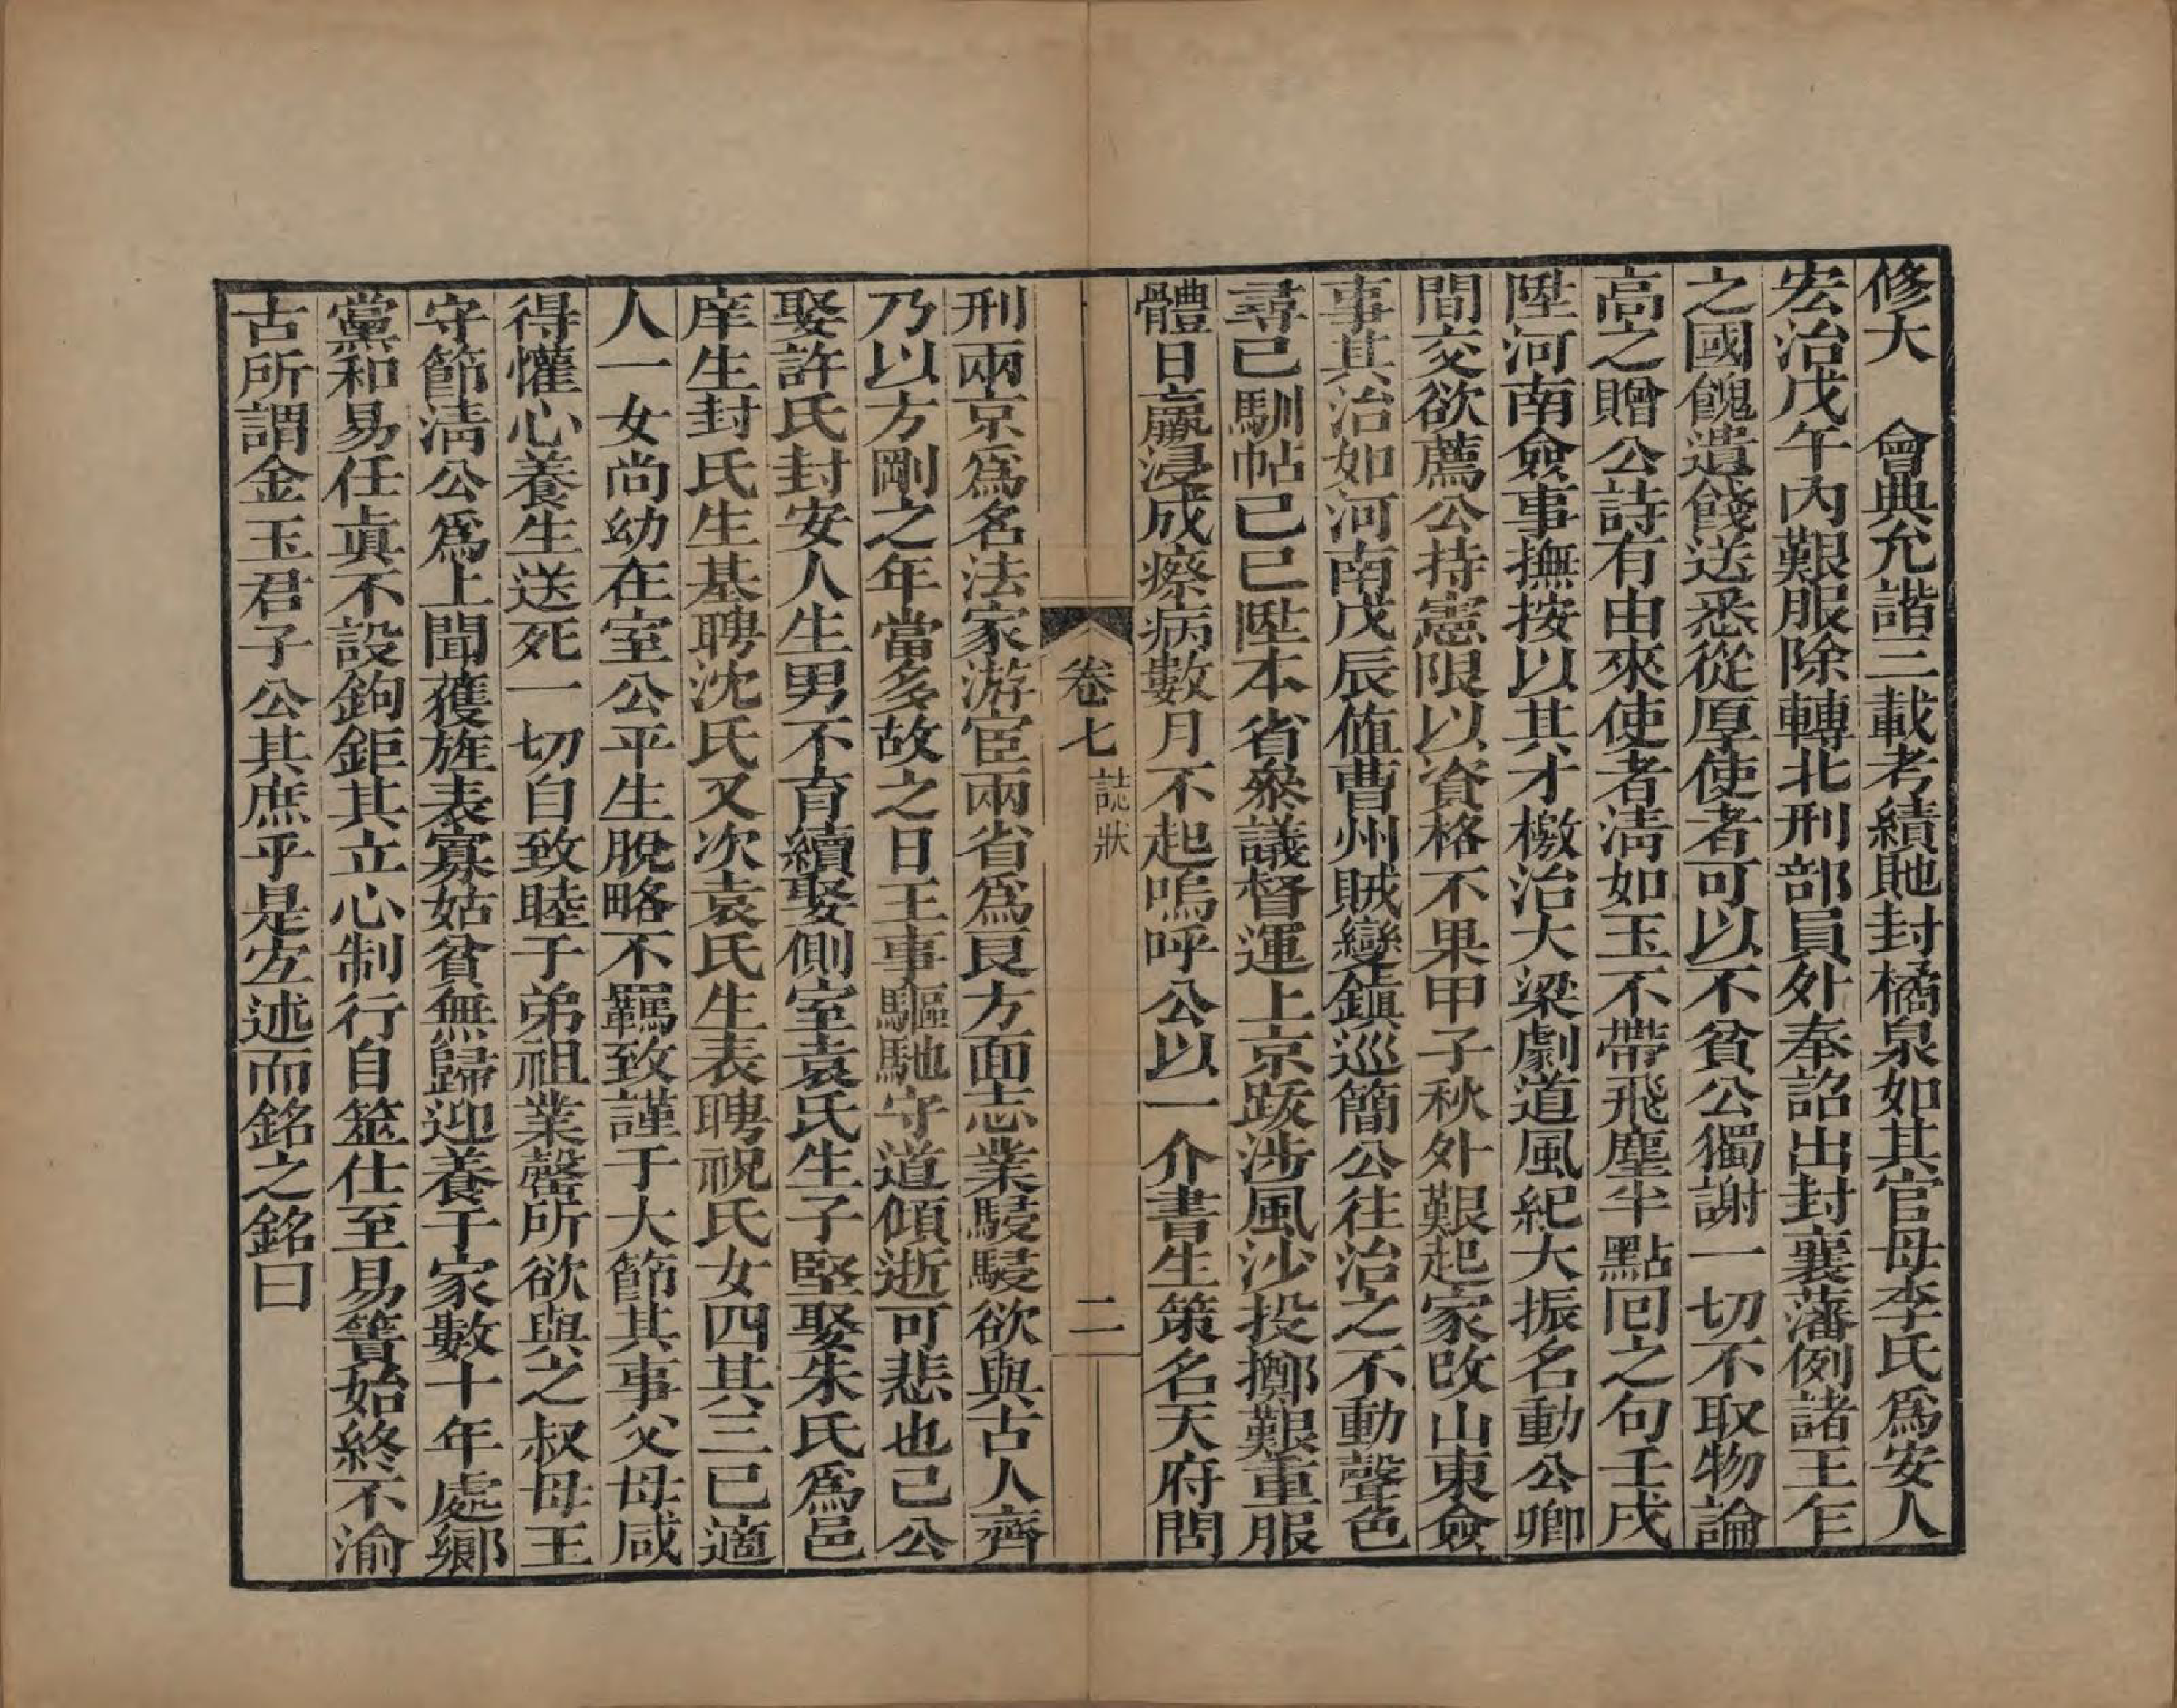 修大　會典允諧三載考績貤封橘泉如其官母李氏爲安人
宏治戊午內艱服除轉北刑部員外奉詔出封襄藩例諸王乍
之國餽遺餞送悉從厚使者可以不貧公獨謝一切不取物論
高之贈公詩有由來使者淸如玉不帶飛塵半點囘之句壬戌
陞河南僉事撫按以其才檄治大梁劇道風紀大振名動公卿
間交欲薦公持憲限以資格不果甲子秋外艱起家改山東僉
事其治如河南戊辰値曹州賊變鎭巡簡公往治之不動聲色
尋已馴帖己巳陞本省叅議督運上京跋涉風沙投擲艱重服
體日羸浸成瘵病數月不起嗚呼公以一介書生策名天府閱
卷七 誌狀 二
刑兩京爲名法家游宦兩省爲良方面志業駸駸欲與古人齊
乃以方剛之年當多故之日王事驅馳守道傾逝可悲也已公
娶許氏封安人生男不育續娶側室袁氏生子堅娶朱氏爲邑
庠生封氏生基聘沈氏又次袁氏生表聘祝氏女四其三已適
人一女尚幼在室公平生脫略不羈致謹于大節其事父母咸
得懽心養生送死一切自致睦子弟祖業罄所欲與之叔母王
守節淸公爲上聞獲旌表寡姑貧無歸迎養于家數十年處鄉
黨和易任眞不設鉤鉅其立心制行自筮仕至易簀始終不渝
古所謂金玉君子公其庶乎是宐述而銘之銘曰